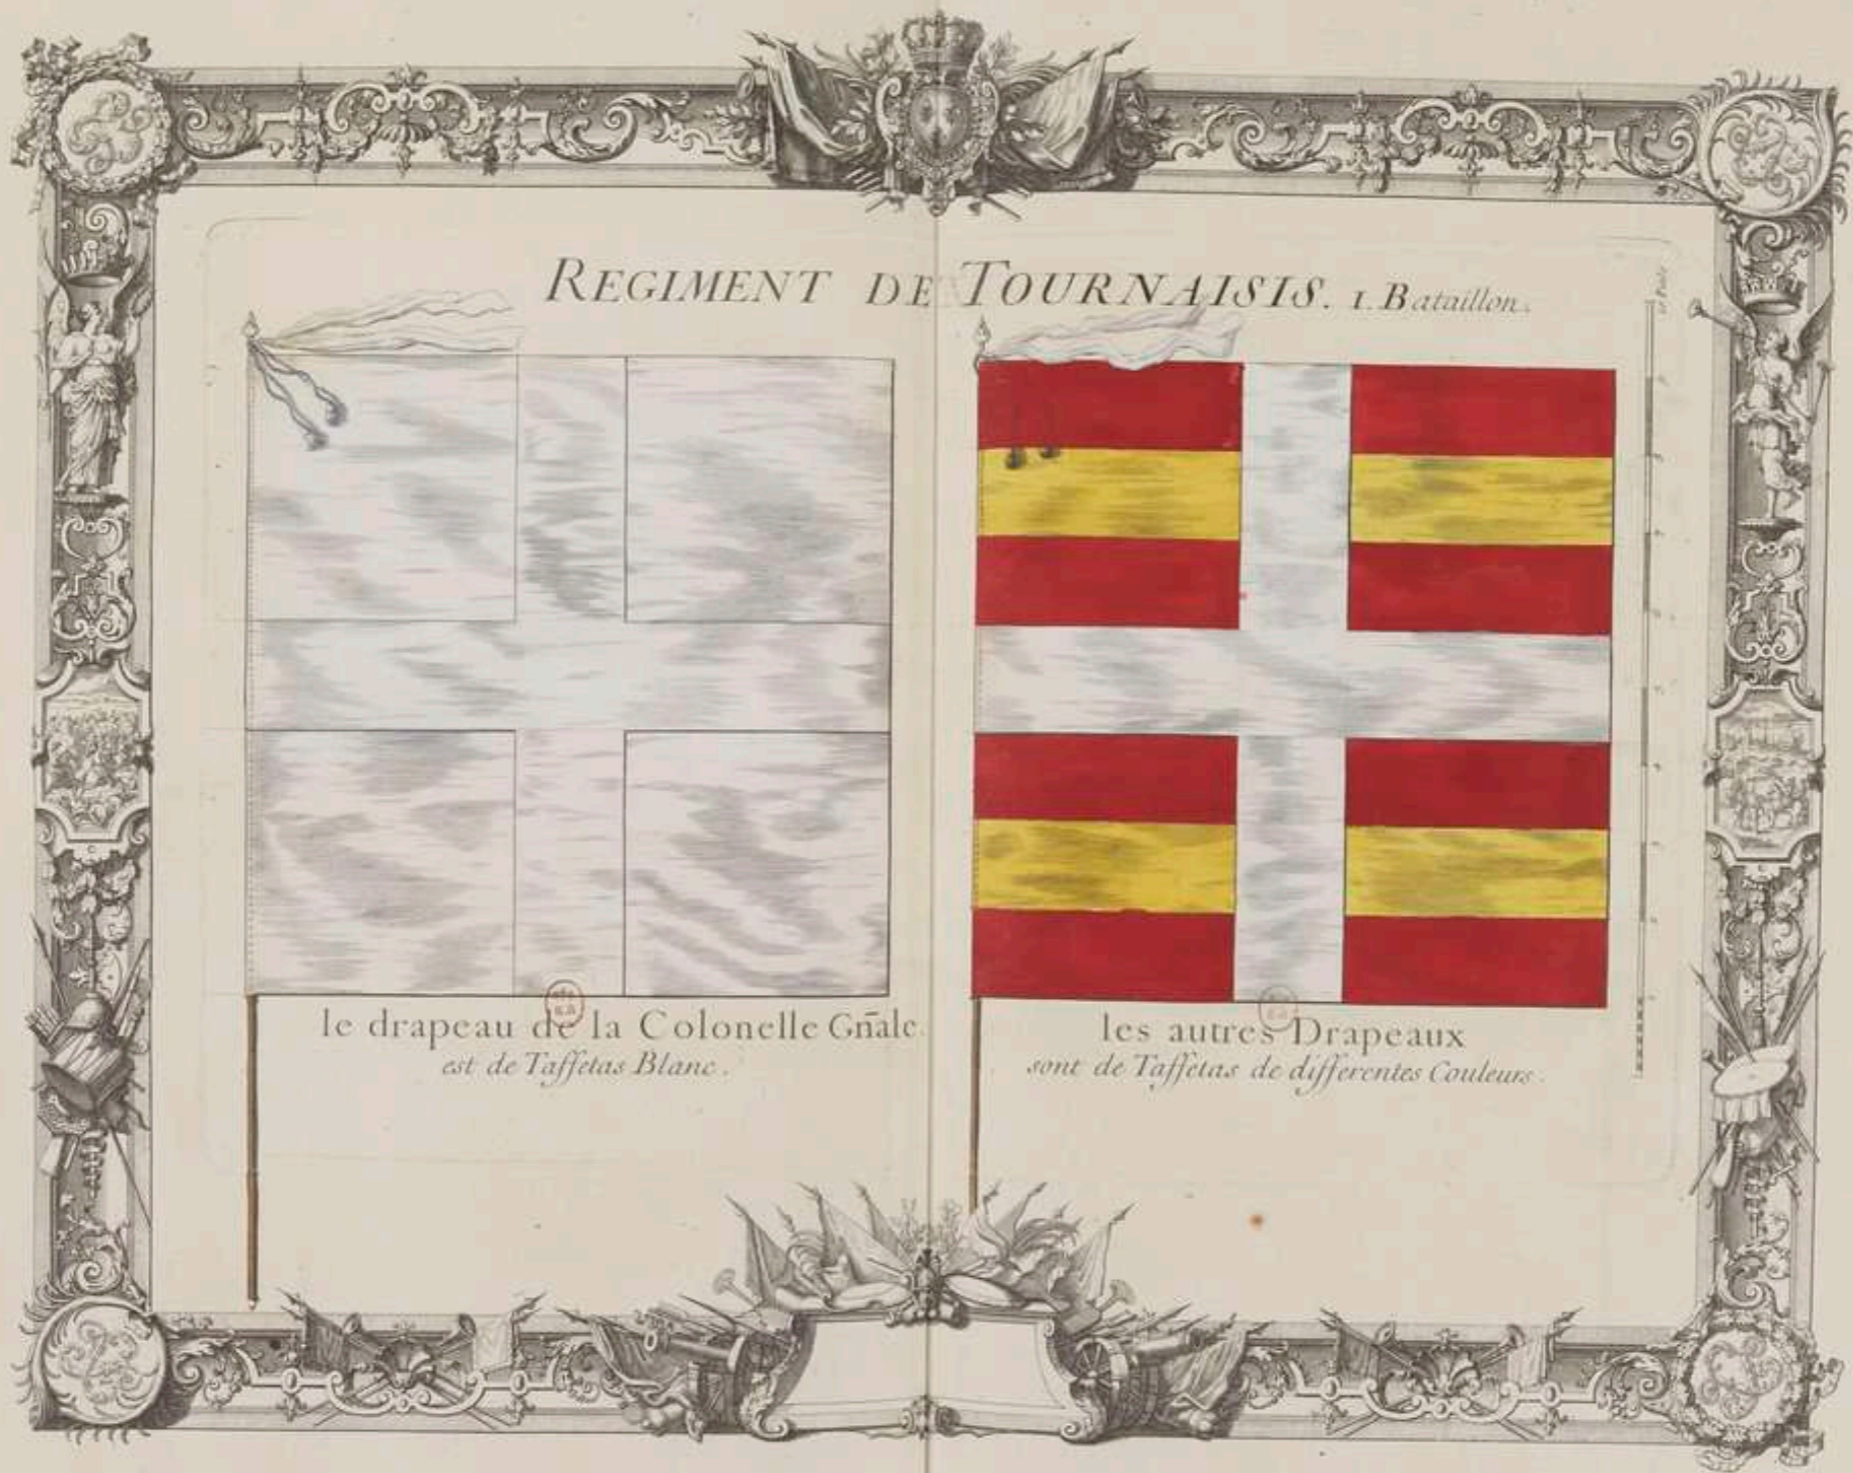 REGIMENT DE TOURNAISIS. 1. Bataillon.
le drapeau de la Colonelle Gñale.
est de Taffetas Blanc.
les autres Drapeaux
sont de Taffetas de differentes Couleurs.